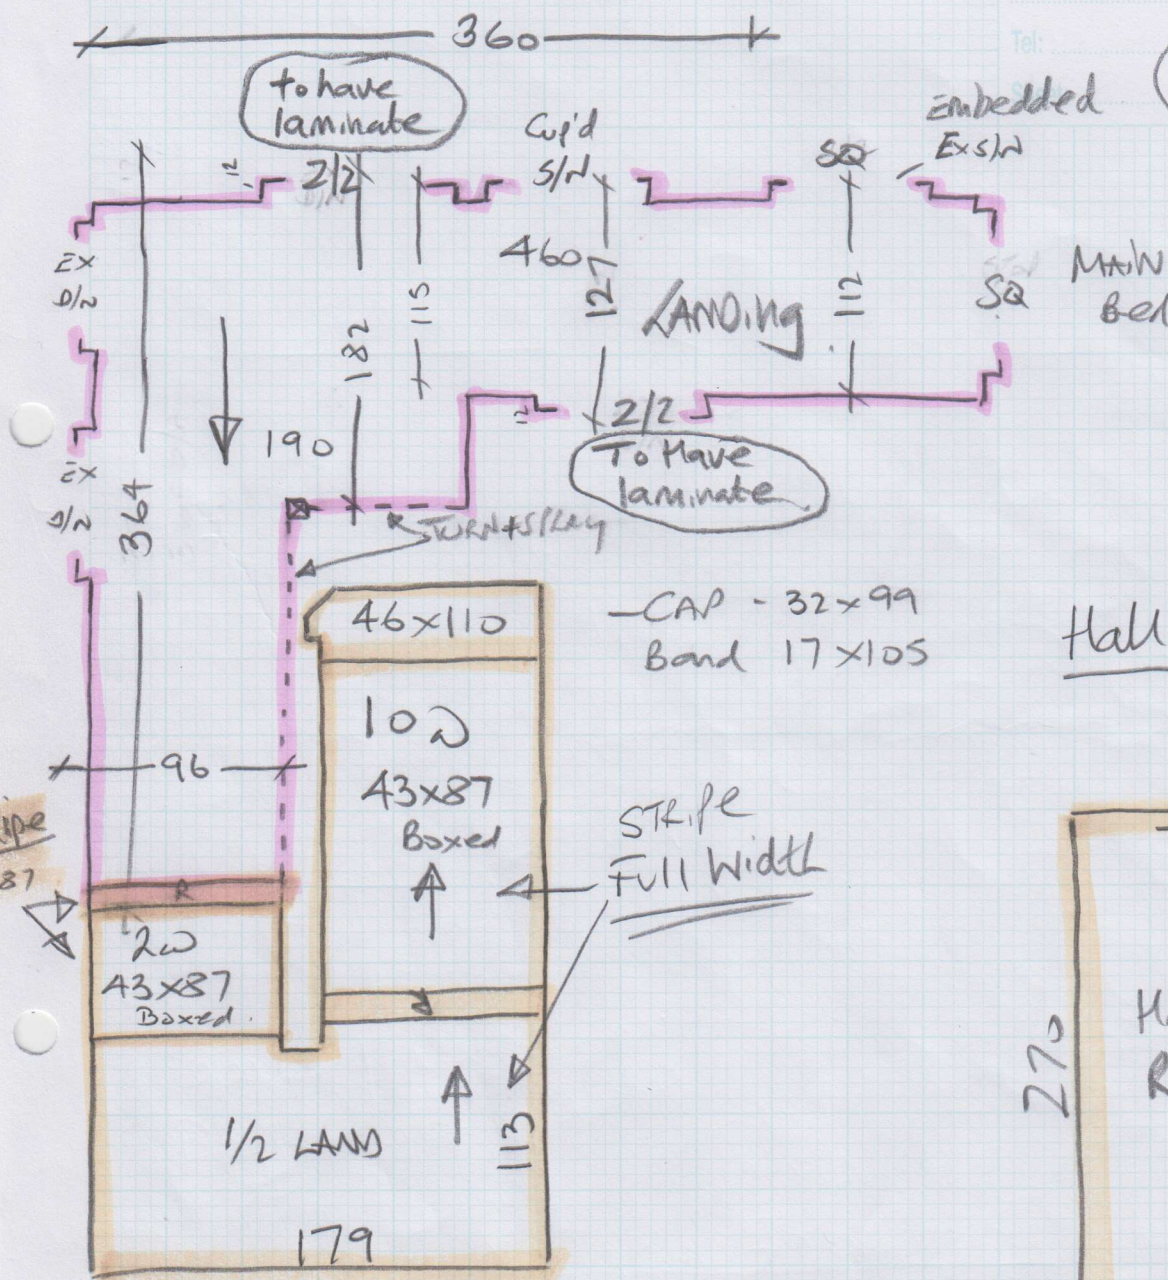 360
Tel:
to have
laminate
Cup'd
S/N
SQ
Embedded
Ex S/N
12
2/2
D/N
EX
D/N
460
127
115
182
LANDING
112
SQ
MAIN
Bed
12
2/2
To Have
laminate
190
EX
D/N
364
TURN+SPLAY
46x110
CAP - 32x99
Band 17x105
Hall
10W
43x87
Boxed
96
STRIPE
Full Width
ipe
87
R
2W
43x87
Boxed.
270
1/2 LAND
113
179